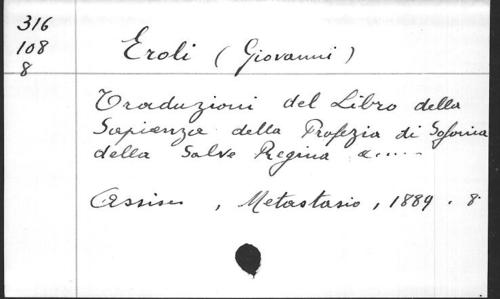 316
108
8
Eroli (Giovanni)
Traduzioni del Libro della
Sapienza della Profezia di Sofonia
della Salve Regina e.....
Assisi, Metastasio, 1889. 8.